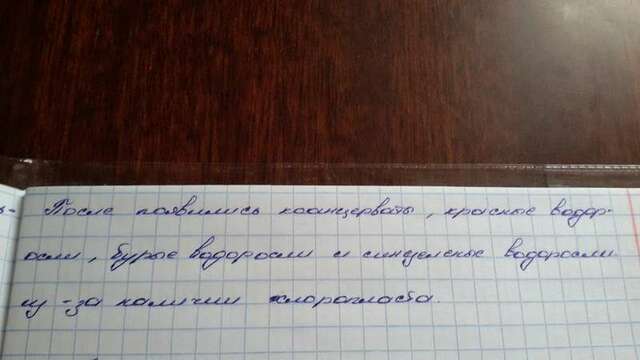 После появились коанцерваты, красные водор-
осли, бурые водоросли и синезеленые водоросли
из-за наличии хлорапласта.